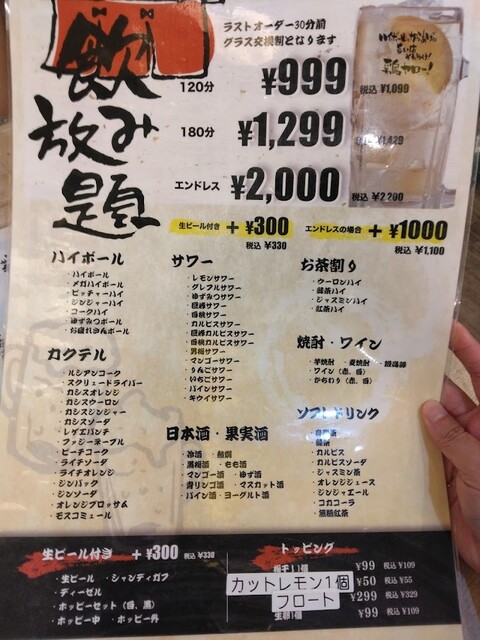 飲み放題
ラストオーダー30分前
グラス交換制となります
120分 ¥999 税込 ¥1,099
180分 ¥1,299 税込 ¥1,429
エンドレス ¥2,000 税込 ¥2,200
生ビール付き +¥300 税込 ¥330
エンドレスの場合 +¥1000 税込 ¥1,100
ハイボール
・ハイボール
・メガハイボール
・ピッチャーハイ
・ジンジャーハイ
・コークハイ
・ゆずみつボール
サワー
・レモンサワー
・グレフルサワー
・ゆずみつサワー
・巨峰サワー
・白桃サワー
・カルピスサワー
・巨峰カルピスサワー
・白桃カルピスサワー
・男梅サワー
・マンゴーサワー
・りんごサワー
・いちごサワー
・パインサワー
・キウイサワー
お茶割り
・ウーロンハイ
・緑茶ハイ
・ジャスミンハイ
・紅茶ハイ
焼酎・ワイン
・芋焼酎 ・麦焼酎
・ワイン(赤、白)
・かちわり(赤、白)
カクテル
・ルシアンコーク
・スクリュードライバー
・カシスオレンジ
・カシスウーロン
・カシスジンジャー
・カシスソーダ
・レゲエパンチ
・ファジーネーブル
・ピーチコーク
・ライチソーダ
・ライチオレンジ
・ジンバック
・ジンソーダ
・オレンジブロッサム
・モスコミュール
日本酒・果実酒
・冷酒 ・熱燗
・黒梅酒 ・もも酒
・マンゴー酒 ・ゆず酒
・青リンゴ酒 ・マスカット酒
・パイン酒・ヨーグルト酒
ソフトドリンク
・緑茶
・カルピス
・カルピスソーダ
・ジャスミン茶
・オレンジジュース
・ジンジャエール
・コカコーラ
・無糖紅茶
生ビール付き +¥300 税込 ¥330
・生ビール ・シャンディガフ
・ディーゼル
・ホッピーセット(白、黒)
・ホッピー中 ・ホッピー外
トッピング
梅干し1個 ¥99 税込 ¥109
カットレモン1個 ¥50 税込 ¥55
フロート ¥299 税込 ¥329
¥99 税込 ¥109